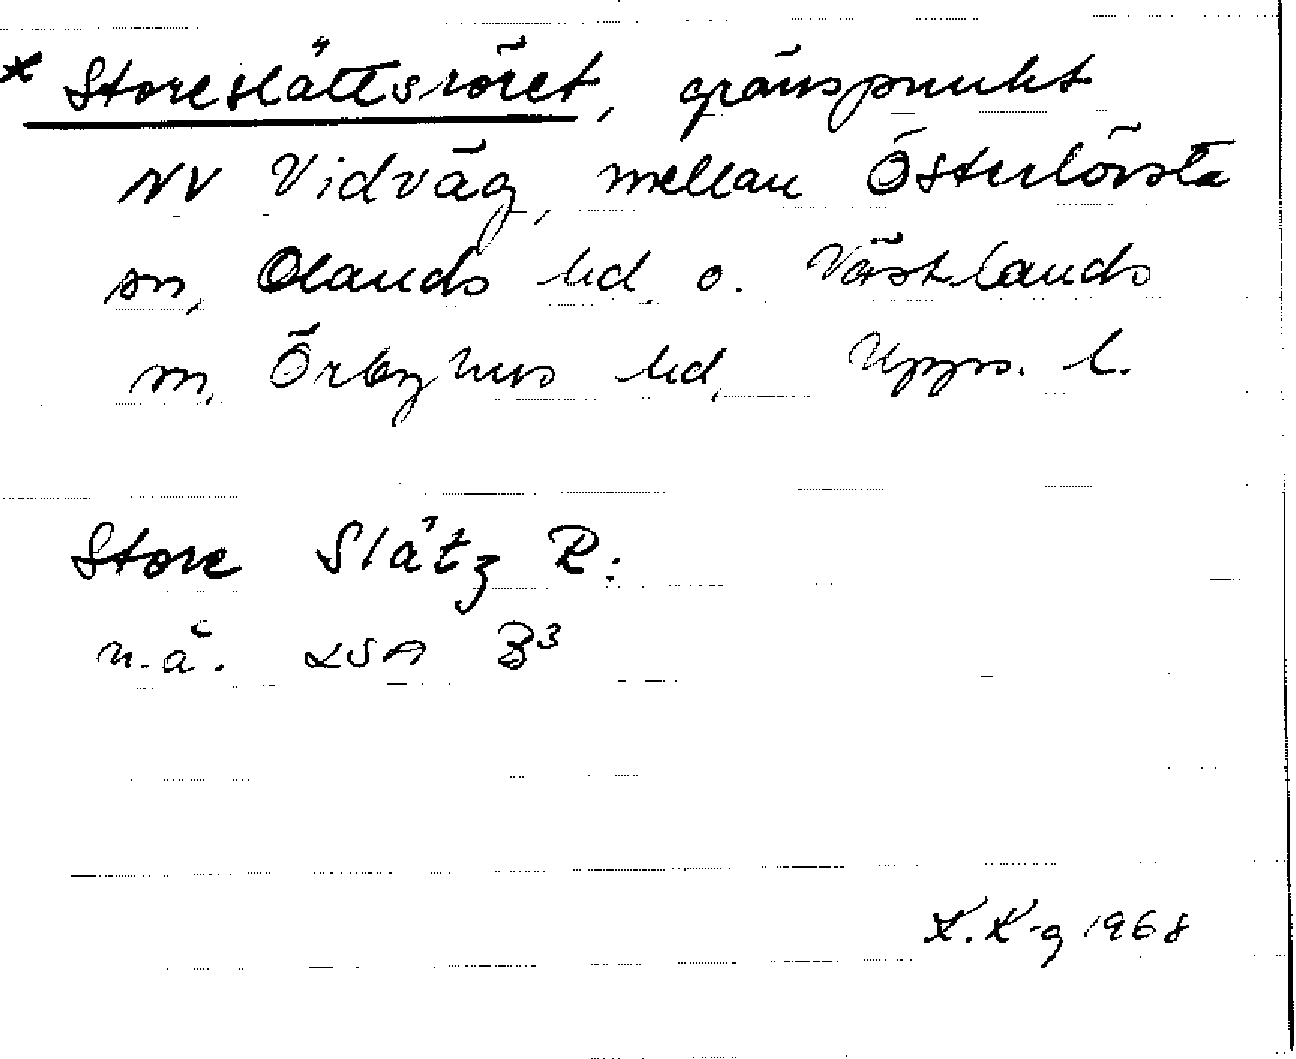 * Storeslättsröret, gränspunkt
NV Vidväg, mellan Österlövsta
sn, Olands hd. o. Västlands
sn, Örbyhus hd, Upps. l.
Store Slätz R:
n.ä. LSA B3
K. K-g 1968